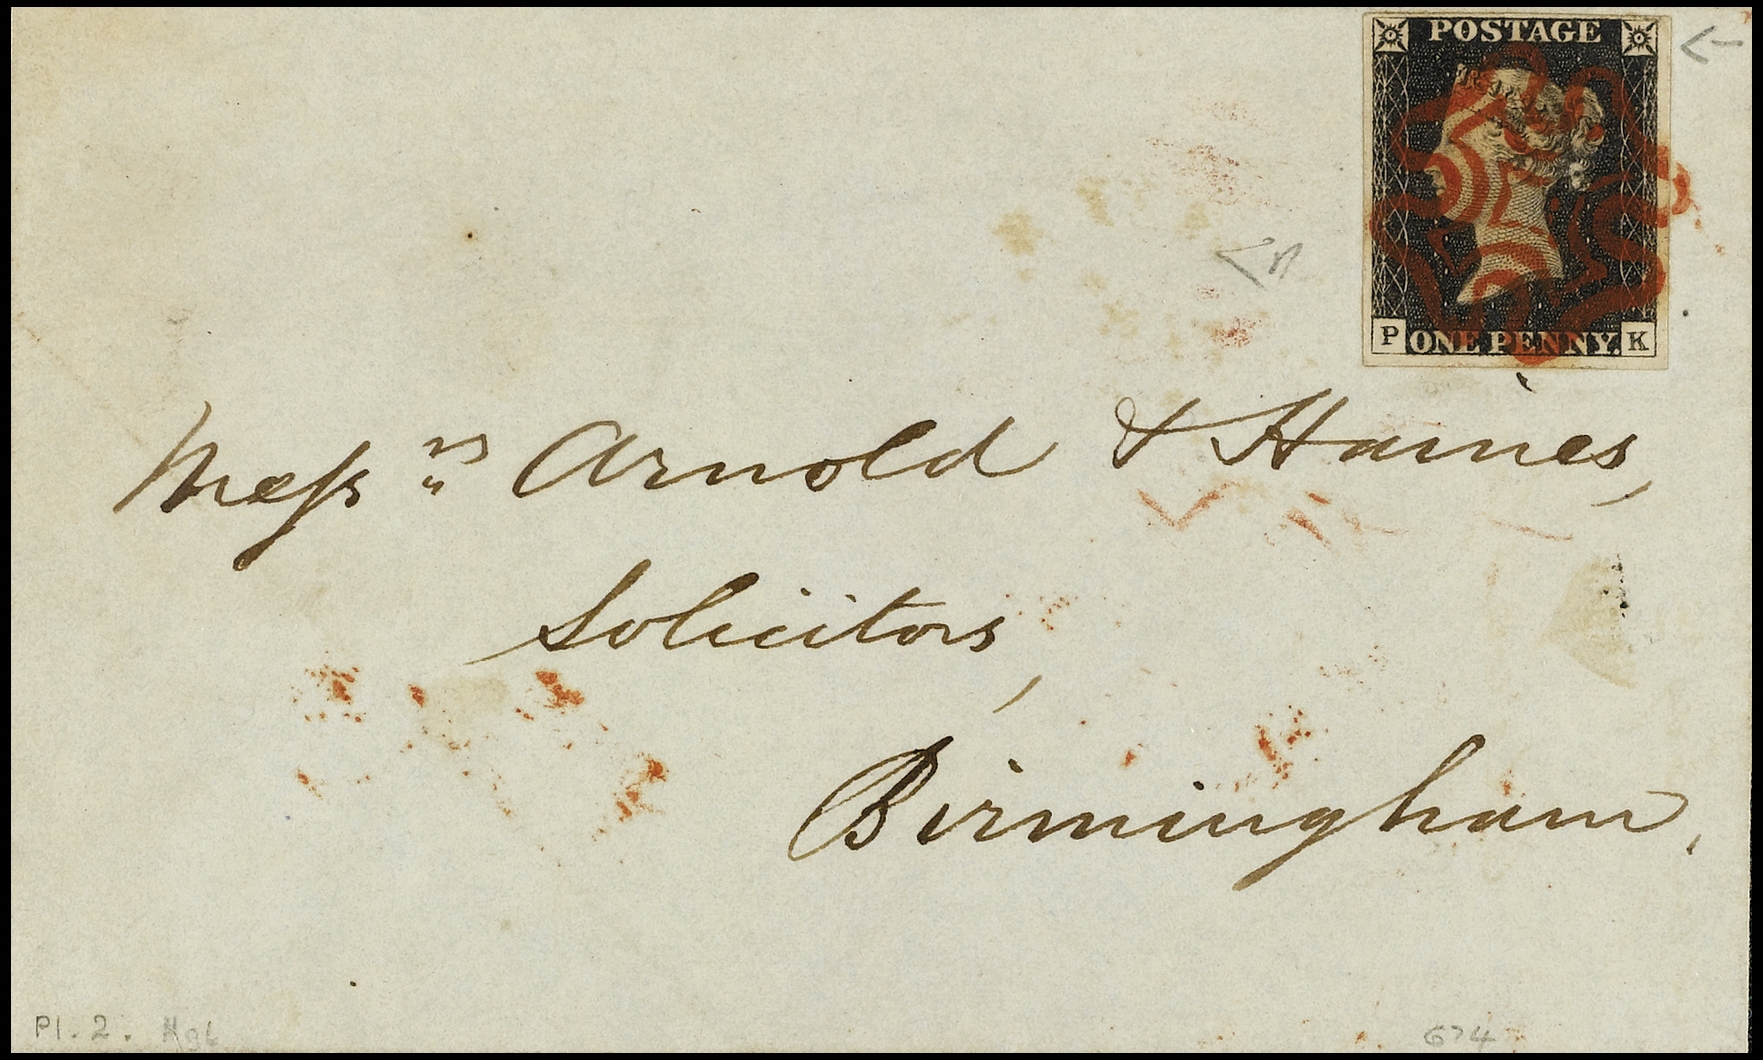 POSTAGE
P ONE PENNY. K
Messrs Arnold & Haines,
Solicitors,
Birmingham.
Pl. 2.
674